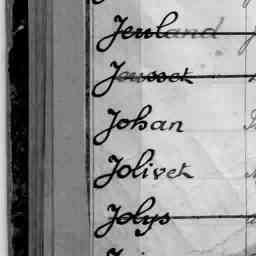 Jeuland
Jousset
Johan
Jolivet
Jolys